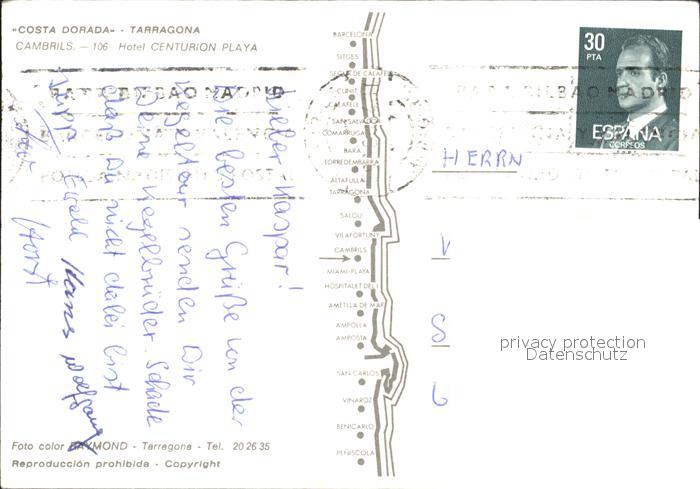 "COSTA DORADA" - TARRAGONA
CAMBRILS. — 106 Hotel CENTURION PLAYA
Lieber Kaspar!
Die besten Grüße von der
Kegeltour senden Dir
Deine Kegelbrüder. Schade
daß Du nicht dabei bist
Ewald Hans Wolfgang
Horst
Foto color RAYMOND - Tarragona - Tel. 20 26 35
Reproducción prohibida - Copyright
BARCELONA
SITGES
SEGUR DE CALAFELL
CUNIT
CALAFELL
SAN SALVADOR
COMARRUGA
BARA
TORREDEMBARRA
ALTAFULLA
TARRAGONA
SALOU
VILAFORTUNY
CAMBRILS
MIAMI-PLAYA
HOSPITALET DEL I.
AMETLLA DE MAR
AMPOLLA
AMPOSTA
SAN CARLOS
VINAROZ
BENICARLO
PEÑISCOLA
30
PTA
ESPAÑA
CORREOS
BILBAO MADRID
BILBAO MADRID
HERRN
privacy protection
Datenschutz